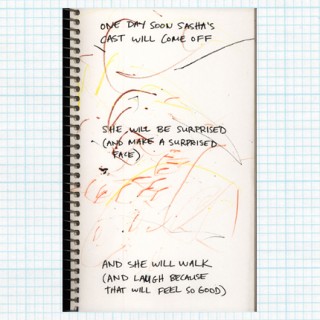 ONE DAY SOON SASHA'S
CAST WILL COME OFF
SHE WILL BE SURPRISED
(AND MAKE A SURPRISED
FACE)
AND SHE WILL WALK
(AND LAUGH BECAUSE
THAT WILL FEEL SO GOOD)